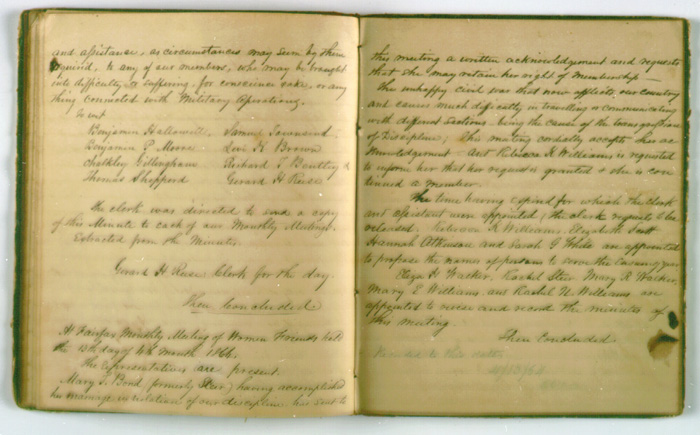 and assistance, as circumstances may seem by them
required, to any of our members, who may be brought
into difficulty or suffering, for conscience sake, or any
thing connected with Military Operations.
To wit
Benjamin Hallowell, Samuel Townsend
Benjamin P. Moore Levi K Brown
Chalkley Gillingham Richard T Bentley &
Thomas Shepperd Gerard H Reese
The clerk was directed to send a copy
of this Minute to each of our Monthly Meetings.
Extracted from the Minutes.
Gerard H Reese Clerk for the day.
Then Concluded
At Fairfax Monthly Meeting of Women Friends held
the day of 4th month
The representatives are present.
Mary S. Bond (formerly Steer) having accomplished
her marriage in violation of our discipline, has sent to
this meeting a written acknowledgement and requests
that she may retain her right of Membership
The unhappy civil war that now afflicts our country
and causes much difficulty in travelling or communicating
with different sections, being the cause of the transgression
of Discipline, This meeting cordially accepts her ac
knowledgement and Rebecca K Williams is requested
to inform her that her request is granted & she is con
tinued a member.
The time having expired for which the clerk
and assistant were appointed, the clerk requests to be
released. Rebecca K Williams, Elizabeth
Hannah Atkinson and Sarah G White are appointed
to propose the names of persons to serve the Ensuing year
Eliza H Walker, Rachel Steer, Mary R Walker,
Mary E Williams and Rachel N Williams are
appointed to revise and record the minutes of
this meeting.
Then Concluded